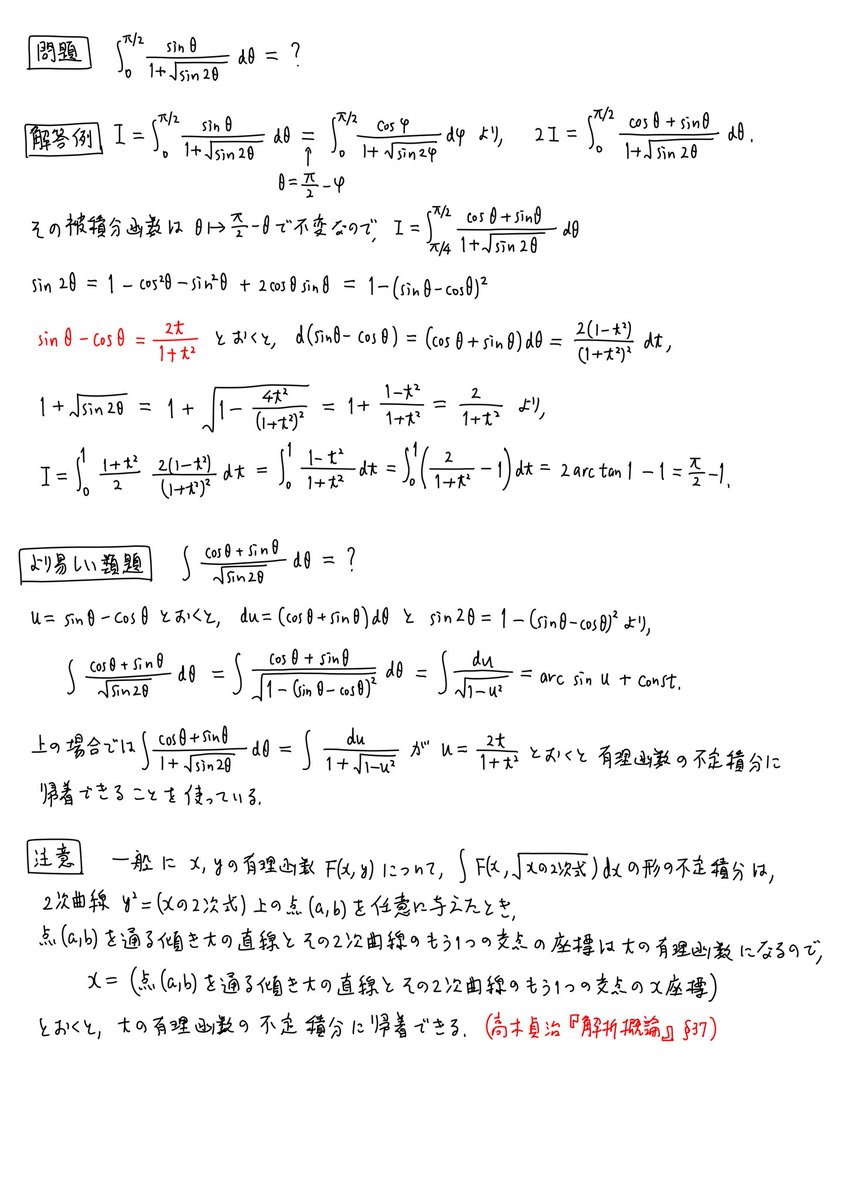 問題 ∫₀^{π/2} sinθ/(1+√(sin2θ)) dθ = ?
解答例 I = ∫₀^{π/2} sinθ/(1+√(sin2θ)) dθ = ∫₀^{π/2} cosφ/(1+√(sin2φ)) dφ より, 2I = ∫₀^{π/2} (cosθ+sinθ)/(1+√(sin2θ)) dθ.
↑
θ = π/2 - φ
その被積分函数は θ↦π/2-θ で不変なので, I = ∫_{π/4}^{π/2} (cosθ+sinθ)/(1+√(sin2θ)) dθ
sin2θ = 1 - cos²θ - sin²θ + 2cosθ sinθ = 1-(sinθ-cosθ)²
sinθ - cosθ = 2t/(1+t²) とおくと, d(sinθ-cosθ) = (cosθ+sinθ)dθ = 2(1-t²)/(1+t²)² dt,
1+√(sin2θ) = 1+√(1-4t²/(1+t²)²) = 1+(1-t²)/(1+t²) = 2/(1+t²) より,
I = ∫₀¹ (1+t²)/2 2(1-t²)/(1+t²)² dt = ∫₀¹ (1-t²)/(1+t²) dt = ∫₀¹ (2/(1+t²) - 1) dt = 2 arctan 1 - 1 = π/2 - 1.
より易しい類題 ∫ (cosθ+sinθ)/√(sin2θ) dθ = ?
u = sinθ - cosθ とおくと, du = (cosθ+sinθ)dθ と sin2θ = 1-(sinθ-cosθ)² より,
∫ (cosθ+sinθ)/√(sin2θ) dθ = ∫ (cosθ+sinθ)/√(1-(sinθ-cosθ)²) dθ = ∫ du/√(1-u²) = arc sin u + const.
上の場合では ∫ (cosθ+sinθ)/(1+√(sin2θ)) dθ = ∫ du/(1+√(1-u²)) が u = 2t/(1+t²) とおくと有理函数の不定積分に
帰着できることを使っている.
注意 一般に x, yの有理函数 F(x,y) について, ∫ F(x, √(xの2次式)) dx の形の不定積分は,
2次曲線 y² = (xの2次式) 上の点(a,b)を任意に与えたとき,
点(a,b)を通る傾きtの直線とその2次曲線のもう1つの交点の座標はtの有理函数になるので,
x = (点(a,b)を通る傾きtの直線とその2次曲線のもう1つの交点のx座標)
とおくと, tの有理函数の不定積分に帰着できる. (高木貞治『解析概論』§37)